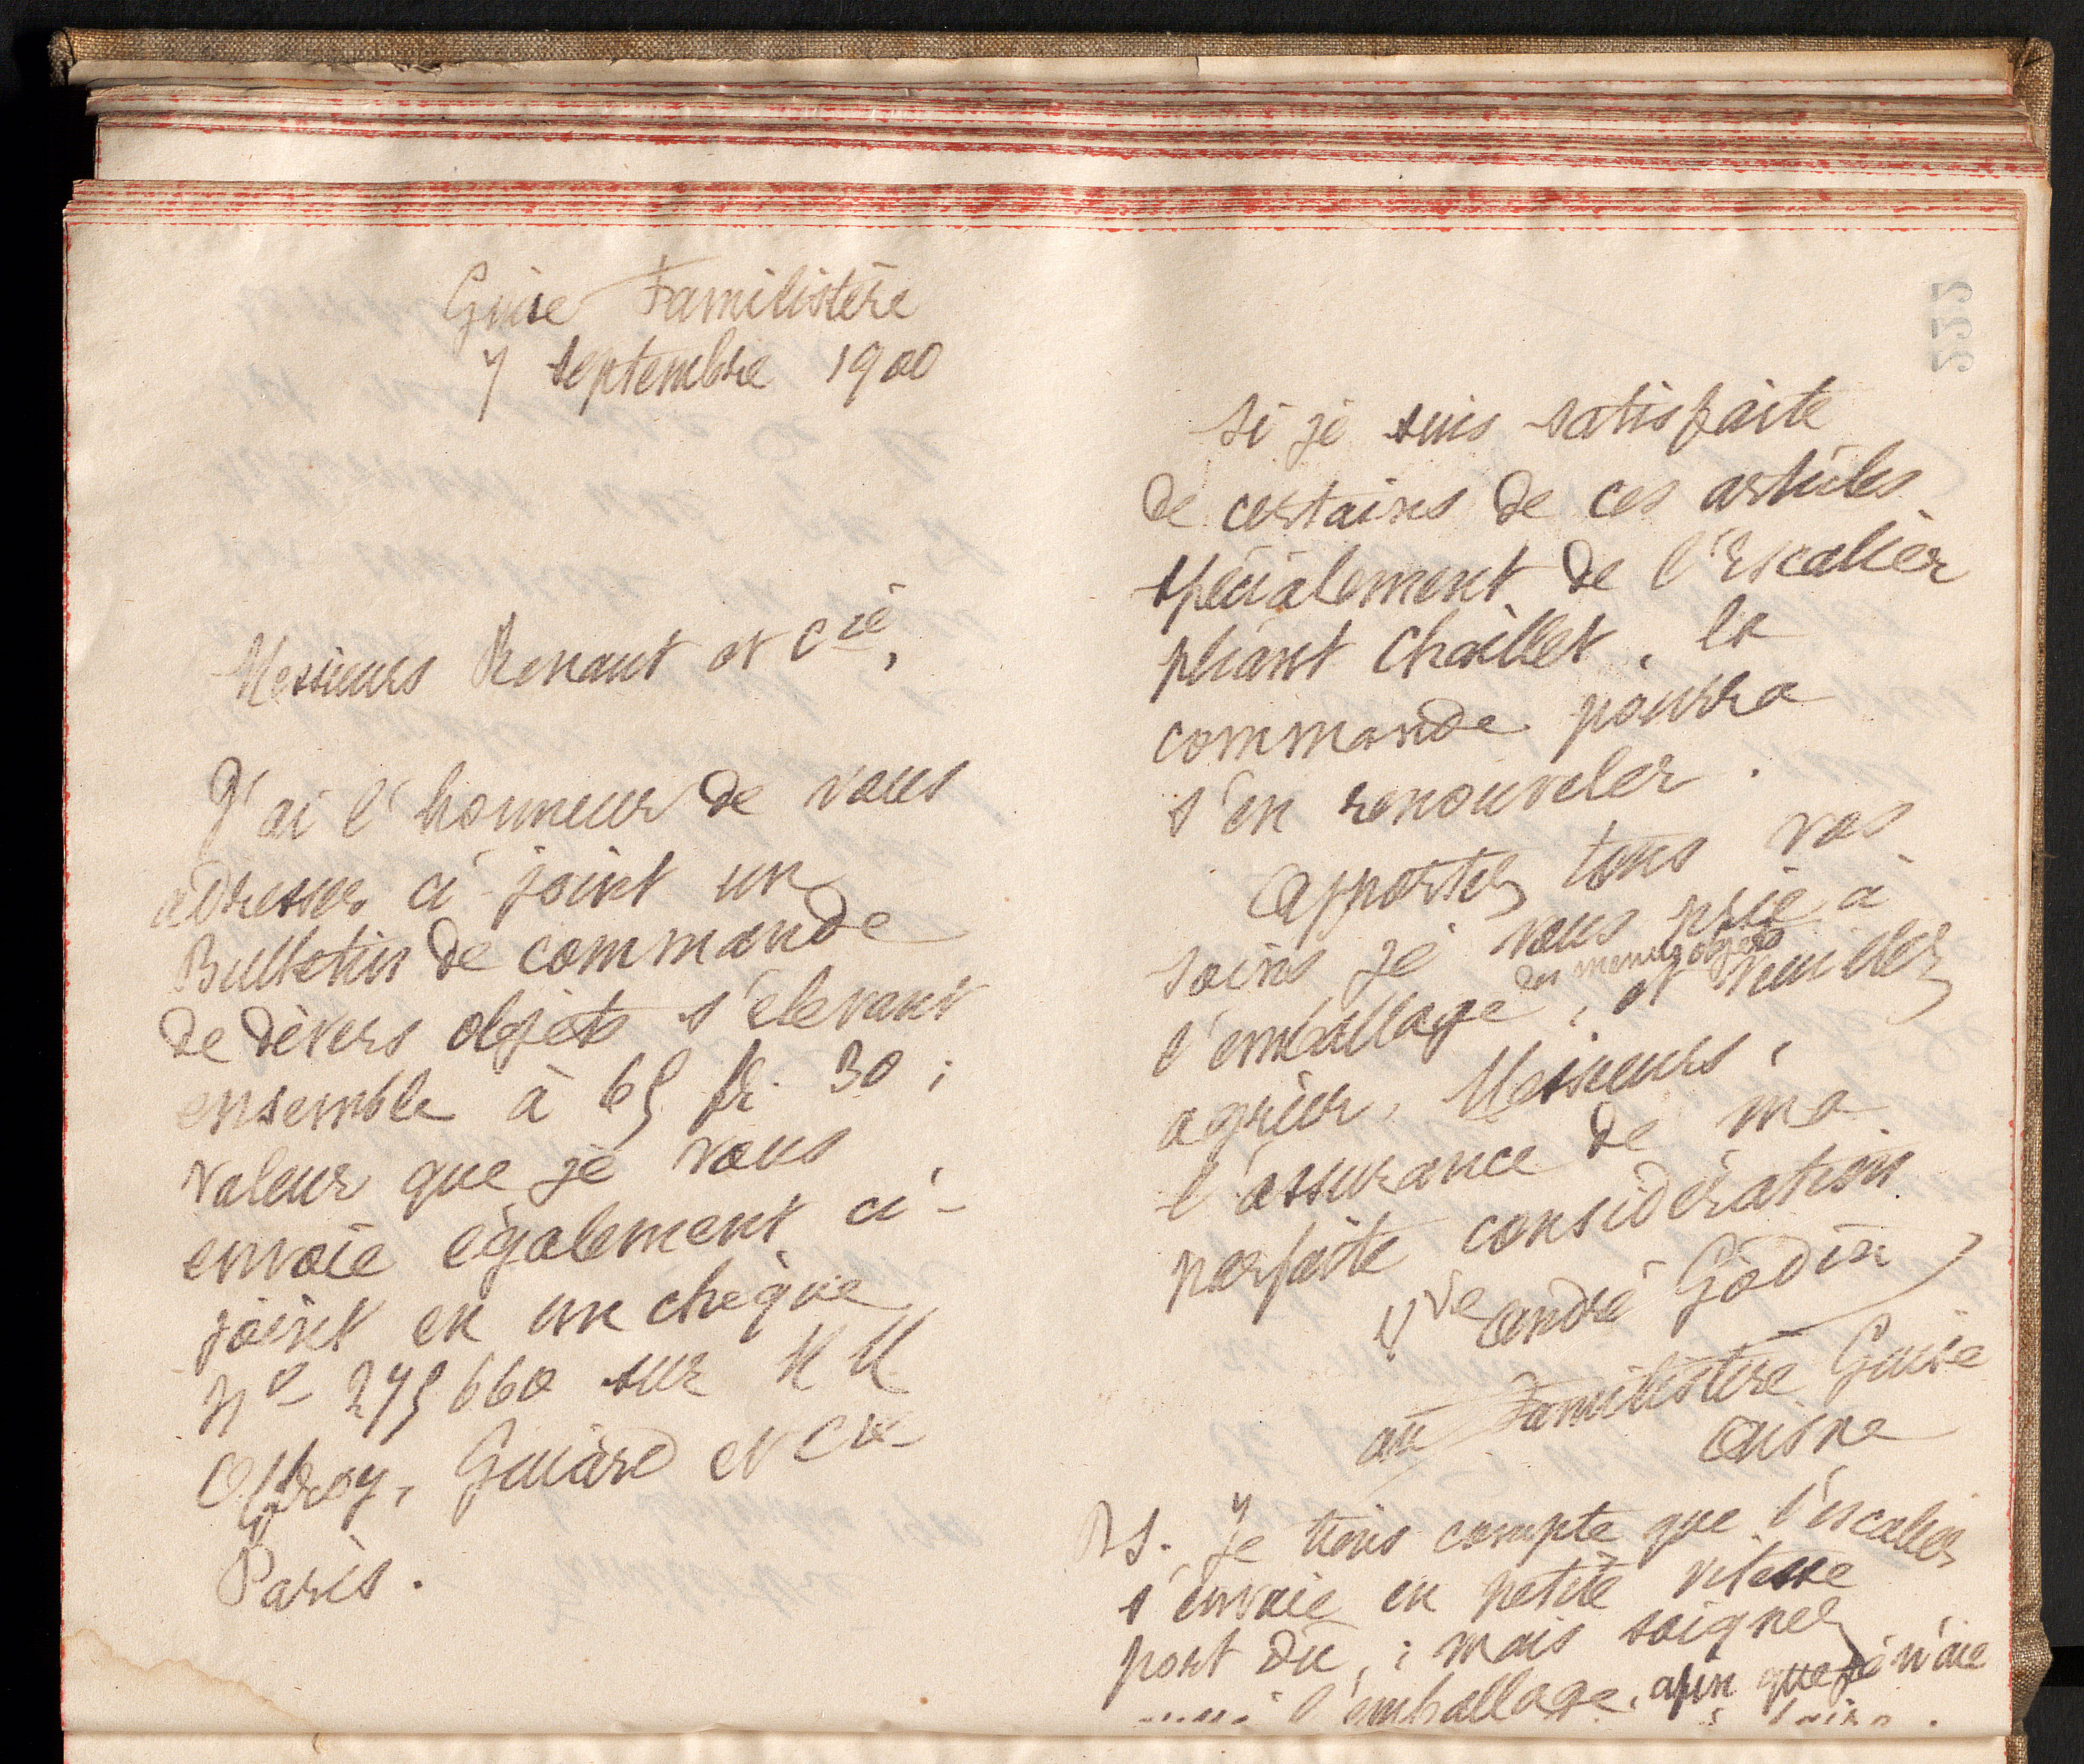 Guise Familistère
7 septembre 1900
Messieurs Renaut et Cie,
J'ai l'honneur de vous
adresser ci-joint un
Bulletin de commande
de divers objets s'élevant
ensemble à 65 fr. 30 ;
valeur que je vous
envoie également ci-
joint en un chèque
No 275660 sur MM
Offroy, Guiard et Cie
Paris.
222
Si je suis satisfaite
de certains de ces articles
spécialement de l'Escalier
pliant Chaillet, la
commande pourra
s'en renouveler.
Apportez tous vos
soins je vous prie à
l'emballage des menus objets, et veuillez
agréer, Messieurs,
l'assurance de ma
parfaite considération
Vve André Godin
au Familistère Guise
Aisne
PS. Je tiens compte que l'escalier
s'envoie en petite vitesse
port dû ; mais soignez
aussi l'emballage, afin que je n'aie